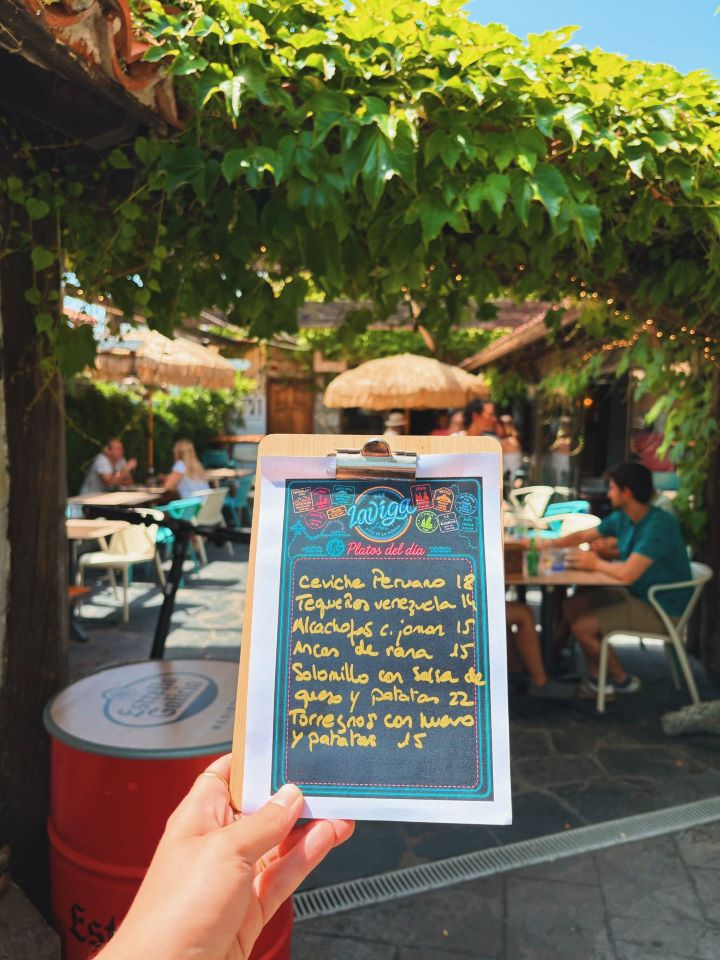 La Viga
Platos del día
Ceviche Peruano 18
Tequeños venezuela 14
Alcachofas c. jamon 15
Ancas de rana 15
Solomillo con salsa de
queso y patatas 22
Torreznos con huevo
y patatas 15
Estrella
Galicia